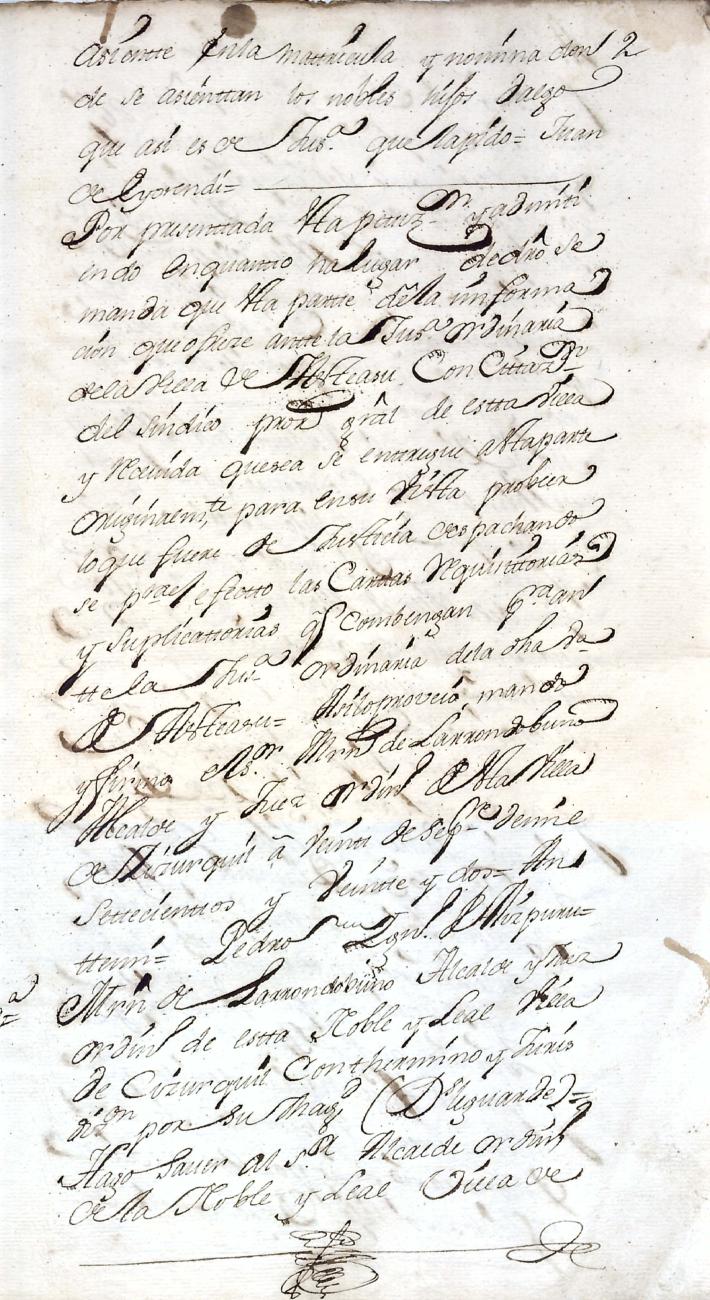 asientte en la mattricula y nomina don 2
de se asienttan los nobles hijos dalgo
que asi es de Jus.a que la pido= Juan
de Eyzendi=
Por presenttada estta petiz.on y admiti
endo en quantto ha lugar de dro se
manda que estta partte de la informa
cion que ofreze antte la Jus.a ordinaria
de la Villa de Astteasu Con Cittaz.on
del sindico pror gral de estta Villa
y Reciuida que sea se enttregue a esta parte
originalm.te para en su Vista probeer
lo que fuere de Justticia despachando
se p.a el efectto las Carttas Requisittorias
y suplicattorias q combengan p.a an
tte la Jus.a ordinaria de la dha Va
de Astteasu= Asi lo proveio mando
y firmo el s.or Mrn de Larrondobuno
Alcalde y Juez ordin.o de estta Villa
de Cizurquil a Veintti de sep.re de mil e
Settecienttos y Veintte y dos= An
ttemi= Pedro Ign.o de Aizpuru=
Mrn de Larrondobuno Alcalde y Juez
ordin.o de estta Noble y Leal Villa
de Cizurquil Con thermino y Juris
dizi.on por su Mag.d (D.s le guarde)=
Hago Sauer al s.or Alcalde ordin.o
de la Noble y Leal Villa de